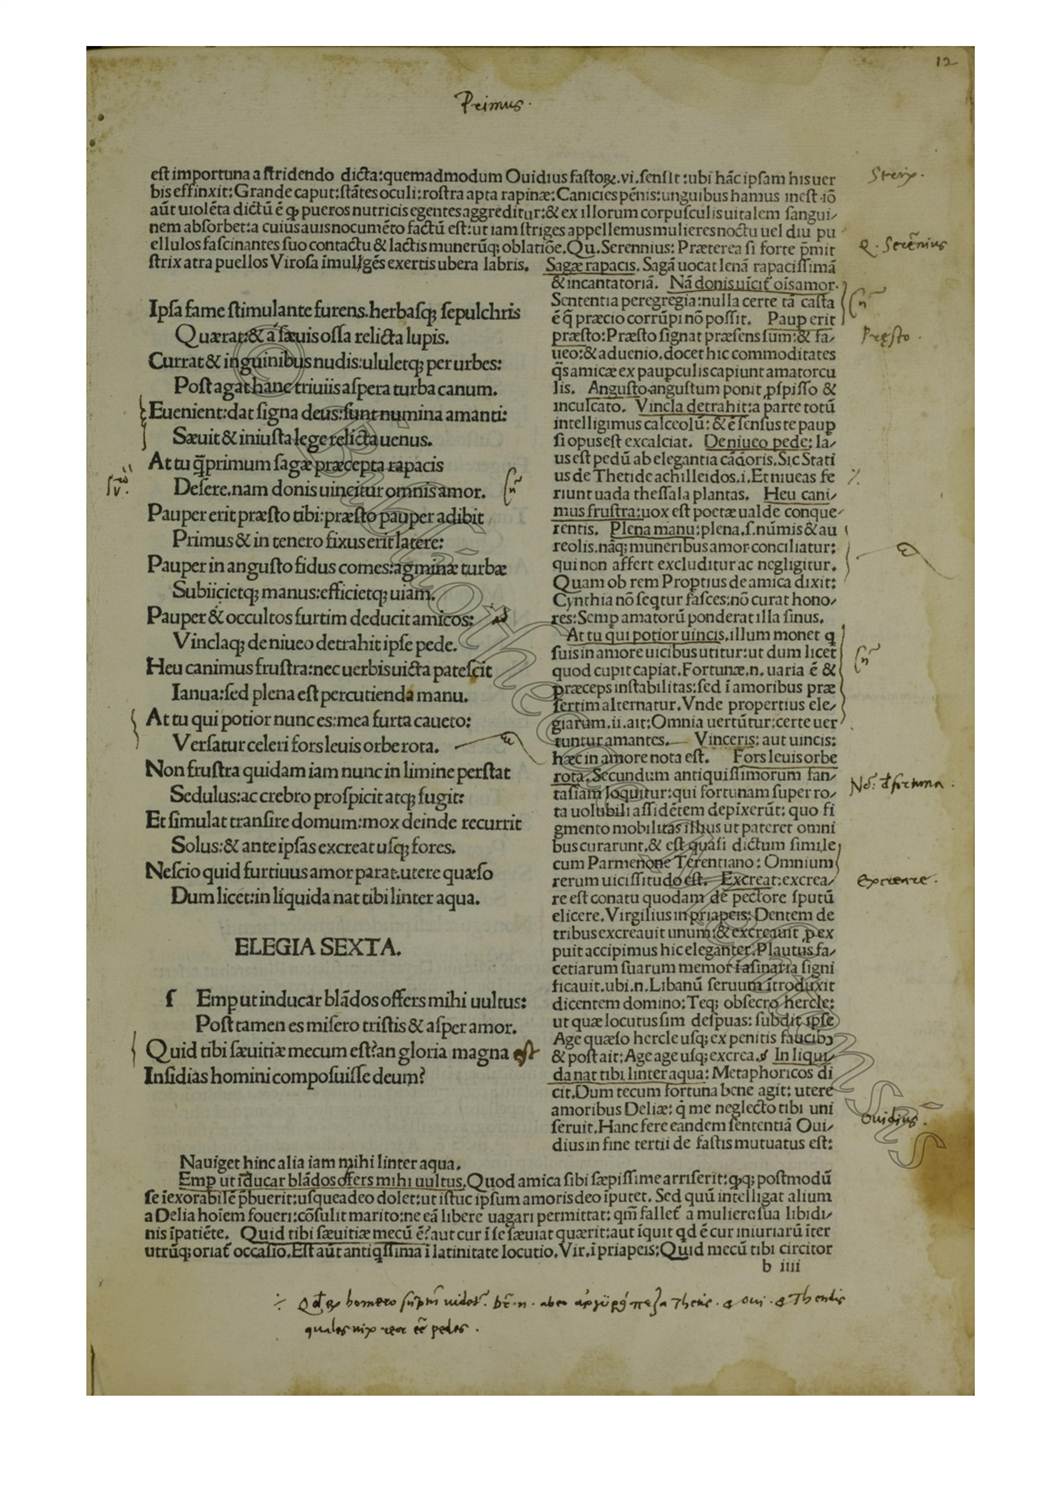 12
Primus.
est importuna a stridendo dicta:quemadmodum Ouidius fastoꝝ.vi.sensit:ubi hāc ipsam his uer
bis effinxit:Grande caput:stātes oculi:rostra apta rapinæ:Canicies pēnis:unguibus hamus inest.iō
aūt uiolēta dictū ē ꝙ pueros nutricis egentes aggreditur:& ex illorum corpusculis uitalem sangui⸗
nem absorbet:a cuius auis nocumēto factū est:ut iam striges appellemus mulieres noctu uel diu pu
ellulos fascinantes suo contactu & lactis munerūq; oblatiōe.Qu.Serennius: Præterea si forte p̄mit
strix atra puellos Virosa īmulgēs exertis ubera labris. Sagæ rapacis. Sagā uocat lenā rapacissimā
Sterix.
Q. Serēnius
Ipsa fame stimulante furens.herbasq; sepulchris
Quærat:& a sæuis ossa relicta lupis.
Currat & inguinibus nudis:ululetq; per urbes:
Post agat hanc triuiis aspera turba canum.
Euenient:dat signa deus:sunt numina amanti:
Sæuit & iniusta lege relicta uenus.
At tu q̄primum sagæ præcepta rapacis
Desere.nam donis uincitur omnis amor.
Pauper erit præsto tibi:præsto pauper adibit
Primus & in tenero fixus erit latere:
Pauper in angusto fidus comes:agminæ turbæ
Subiicietq; manus:efficietq; uiam.
Pauper & occultos furtim deducit amicos:
Vinclaq; de niueo detrahit ipse pede.
Heu canimus frustra:nec uerbis uicta patescit
Ianua:sed plena est percutienda manu.
At tu qui potior nunc es:mea furta caueto:
Versatur celeri fors leuis orbe rota.
Non frustra quidam iam nunc in limine perstat
Sedulus:ac crebro prospicit atq; fugit:
Et simulat transire domum:mox deinde recurrit
Solus:& ante ipsas excreat usq; fores.
Nescio quid furtiuus amor parat.utere quæso
Dum licet:in liquida nat tibi linter aqua.
ELEGIA SEXTA.
s Emp ut inducar blādos offers mihi uultus:
Post tamen es misero tristis & asper amor.
Quid tibi sæuitiæ mecum est?an gloria magna est
Insidias homini composuisse deum?
& incantatoriā. Nā donis uīcit̄ oīs amor.
Sententia peregregia:nulla certe tā casta
ē q̄ præcio corrūpi nō possit. Paup erit
præsto:Præsto signat præsens sum:& fa⸗
ueo:& aduenio.docet hic commoditates
q̄s amicæ ex paupculis capiunt amatorcu
lis. Angusto.angustum ponit ꝓ spisso &
inculcato. Vincla detrahit:a parte totū
intelligimus calceolū:& ē sensus te paup
si opus est excalciat. De niueo pede: la⸗
us est pedū ab elegantia cādoris.Sic Stati
us de Thetide achilleidos.i.Et niueas fe
riunt uada thessala plantas. Heu cani⸗
mus frustra:uox est poetæ ualde conque⸗
rentis. Plena manu:plena.s.nūmis & au
reolis.nāq; muneribus amor conciliatur:
qui non affert excluditur ac negligitur.
Quam ob rem Proptius de amica dixit:
Cynthia nō seqtur fasces:nō curat hono⸗
res:Semp amatorū ponderat illa sinus.
At tu qui potior uincis.illum monet q̄
suis in amore uicibus utitur:ut dum licet
quod cupit capiat.Fortunæ.n.uaria ē &
præceps instabilitas:sed ī amoribus præ
sertim alternatur.Vnde propertius ele⸗
giarum.ii.ait:Omnia uertūtur:certe uer
tuntur amantes. Vinceris: aut uincis:
hæc in amore nota est. Fors leuis orbe
rota.Secundum antiquissimorum fan⸗
tasiam loquitur:qui fortunam super ro⸗
ta uolubili assidētem depixerūt: quo fi
gmento mobilitas illius ut pateret omni
bus curarunt.& est quasi dictum simile
cum Parmenone Terentiano: Omnium
rerum uicissitudo est. Excreat:excrea⸗
re est conatu quodam de pectore sputū
elicere.Virgilius in priapeis:Dentem de
tribus excreauit unum:& excreauit ꝓ ex
puit accipimus hic eleganter.Plautus fa⸗
cetiarum suarum memor ī asinaria signi
ficauit.ubi.n.Libanū seruum ītroduxit
dicentem domino:Teq; obsecro hercle:
ut quæ locutus sim despuas: subdit ipse
Age quæso hercle usq; ex penitis faucibꝰ
& post ait:Age age usq; excrea. In liqui⸗
da nat tibi linter aqua: Metaphoricos di
cit.Dum tecum fortuna bene agit: utere
amoribus Deliæ: q̄ me neglecto tibi uni
seruit.Hanc fere eandem sententiā Oui⸗
dius in fine tertii de fastis mutuatus est:
Præsto.
excreare.
Ouidius.
Nauiget hinc alia iam mihi linter aqua.
Emp ut īducar blādos offers mihi uultus.Quod amica sibi sæpissime arriserit:ꝙq; postmodū
se īexorabilē p̄buerit:usqueadeo dolet:ut istuc ipsum amoris deo īputet. Sed quū intelligat alium
a Delia hoīem foueri:cōsulit marito:ne eā libere uagari permittat: qm̄ fallet̄ a muliere sua libidi⸗
nis īpatiēte. Quid tibi sæuitiæ mecū ē?aut cur ī se sæuiat quærit:aut īquit qd ē cur iniuriarū īter
utrūq;oriat̄ occasio.Est aūt antiq̄ssima ī latinitate locutio.Vir.ī priapeis:Quid mecū tibi circitor
b iiii